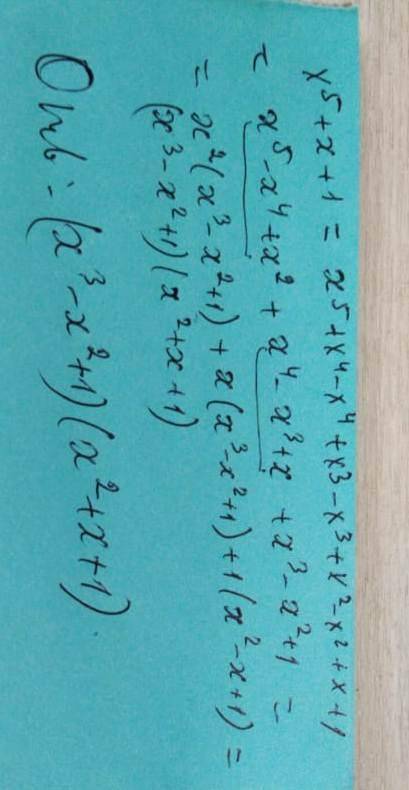 x⁵+x+1 = x⁵+x⁴-x⁴+x³-x³+x²-x²+x+1
= x⁵-x⁴+x² + x⁴-x³+x + x³-x²+1 =
= x²(x³-x²+1) + x(x³-x²+1)+1(x²-x+1) =
(x³-x²+1)(x²+x+1)
Отв: (x³-x²+1)(x²+x+1).